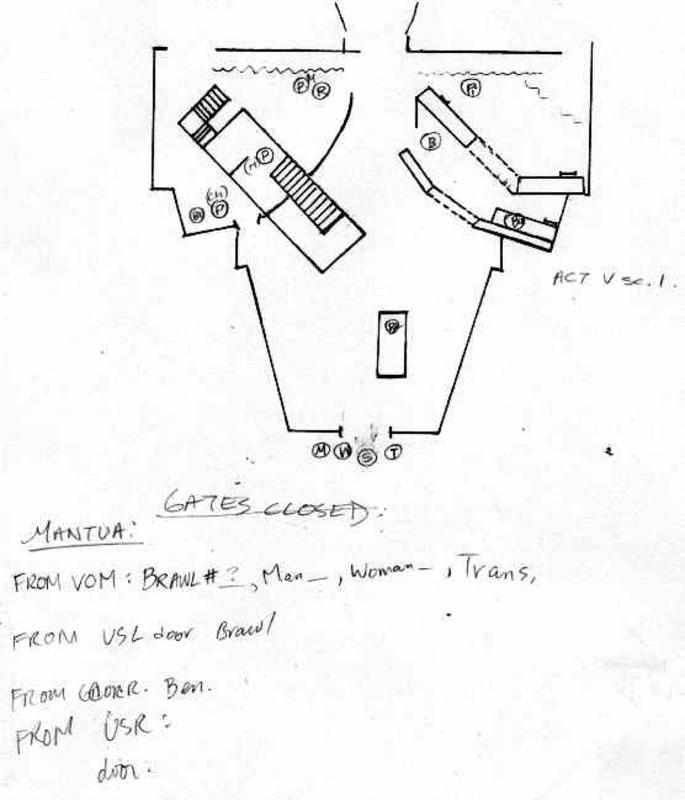 P M R
Pi
B
(H) P
(H)
W P
B
ACT V sc. 1.
M W S T
GATES CLOSED:
MANTUA:
FROM VOM: BRAWL # ?, Man _, Woman _, Trans,
FROM USL door Brawl
FROM Ben.
FROM USR:
door: